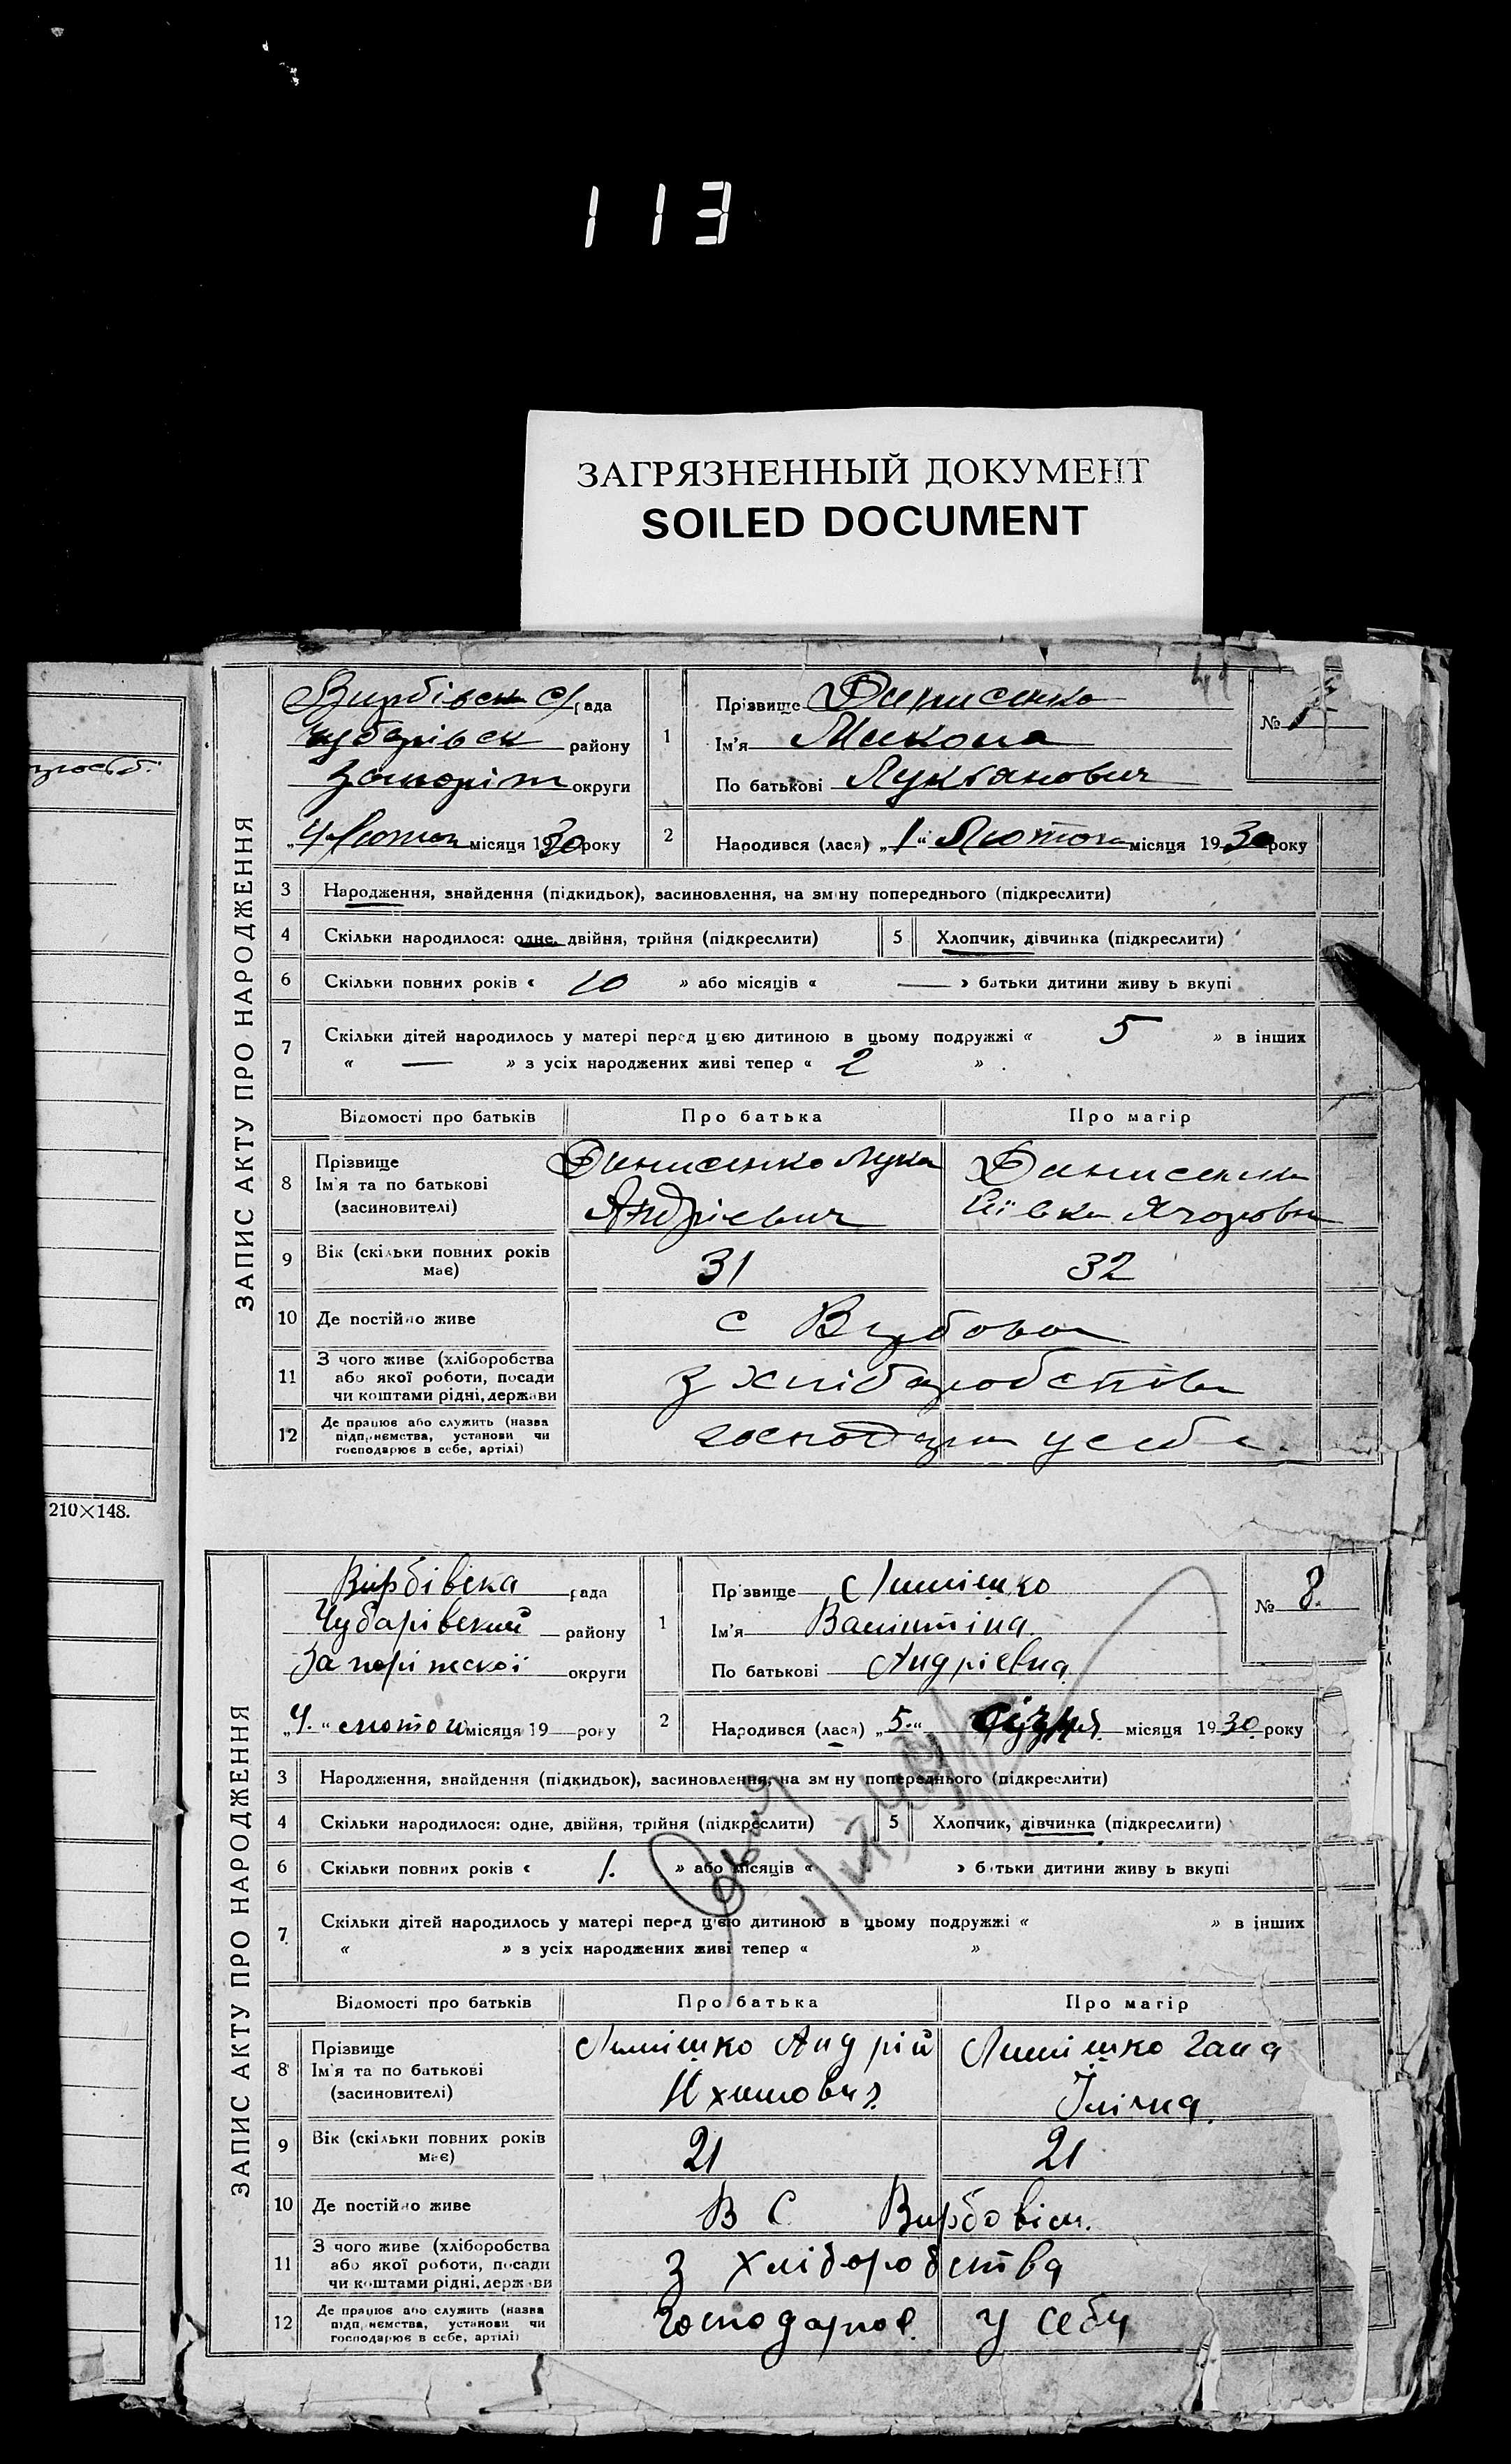 113
ЗАГРЯЗНЕННЫЙ ДОКУМЕНТ
SOILED DOCUMENT
210×148.
ЗАПИС АКТУ ПРО НАРОДЖЕННЯ
Вирбівськ с/рада
Чубарівск району
Запоріж округи
„4“ Лютого місяця 1930 року
1 Прізвище Денисенко
Ім'я Микола
По батькові Лукianович
41
№
2 Народився (лася) „1“ Лютого місяця 1930 року
3 Народження, знайдення (підкидьок), засиновлення, на зміну попереднього (підкреслити)
4 Скільки народилося: одне, двійня, трійня (підкреслити) 5 Хлопчик, дівчинка (підкреслити)
6 Скільки повних років « 10 » або місяців « — » батьки дитини живуть вкупі
7 Скільки дітей народилось у матері перед цією дитиною в цьому подружжі « 5 » в інших
« — » з усіх народжених живі тепер « 2 » .
Відомості про батьків Про батька Про матір
8 Прізвище
Ім'я та по батькові
(засиновителі)
Денисенко Лука
Андрієвич
Денисенко
9 Вік (скільки повних років має) 31 32
10 Де постійно живе с Вирбова
11 З чого живе (хліборобства
або якої роботи, посади
чи коштами рідні, держави
з хліборобства
12 Де працює або служить (назва
підприємства, установи чи
господарює в себе, артілі)
господарює у себе.
ЗАПИС АКТУ ПРО НАРОДЖЕННЯ
Вирбівска рада
Чубарівский району
Запоріжскої округи
„4.“ лютого місяця 19— року
1 Прізвище
Ім'я Валінтіна.
По батькові Андріевна
№ 8.
2 Народився (лася) „5.“ січня місяця 1930 року
3 Народження, знайдення (підкидьок), засиновлення, на зміну попереднього (підкреслити)
4 Скільки народилося: одне, двійня, трійня (підкреслити) 5 Хлопчик, дівчинка (підкреслити)
6 Скільки повних років « 1. » або місяців « » батьки дитини живуть вкупі
7 Скільки дітей народилось у матері перед цією дитиною в цьому подружжі « » в інших
« » з усіх народжених живі тепер « »
Відомості про батьків Про батька Про матір
8 Прізвище
Ім'я та по батькові
(засиновителі)
Андрій
Гана
Ілічна.
9 Вік (скільки повних років має) 21 21
10 Де постійно живе В С Вирбовіси.
11 З чого живе (хліборобства
або якої роботи, посади
чи коштами рідні, держави
з хліборобства
12 Де працює або служить (назва
підприємства, установи чи
господарює в себе, артілі)
господарює у себи